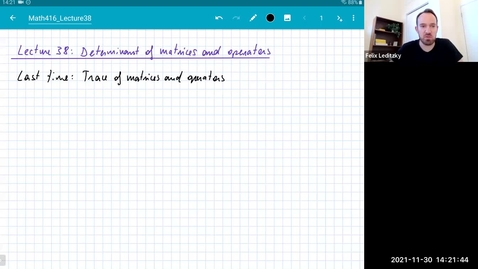 14:21
88%
Math416_Lecture38
1
Lecture 38: Determinant of matrices and operators
Last time: Trace of matrices and operators
Felix Leditzky
2021-11-30 14:21:44